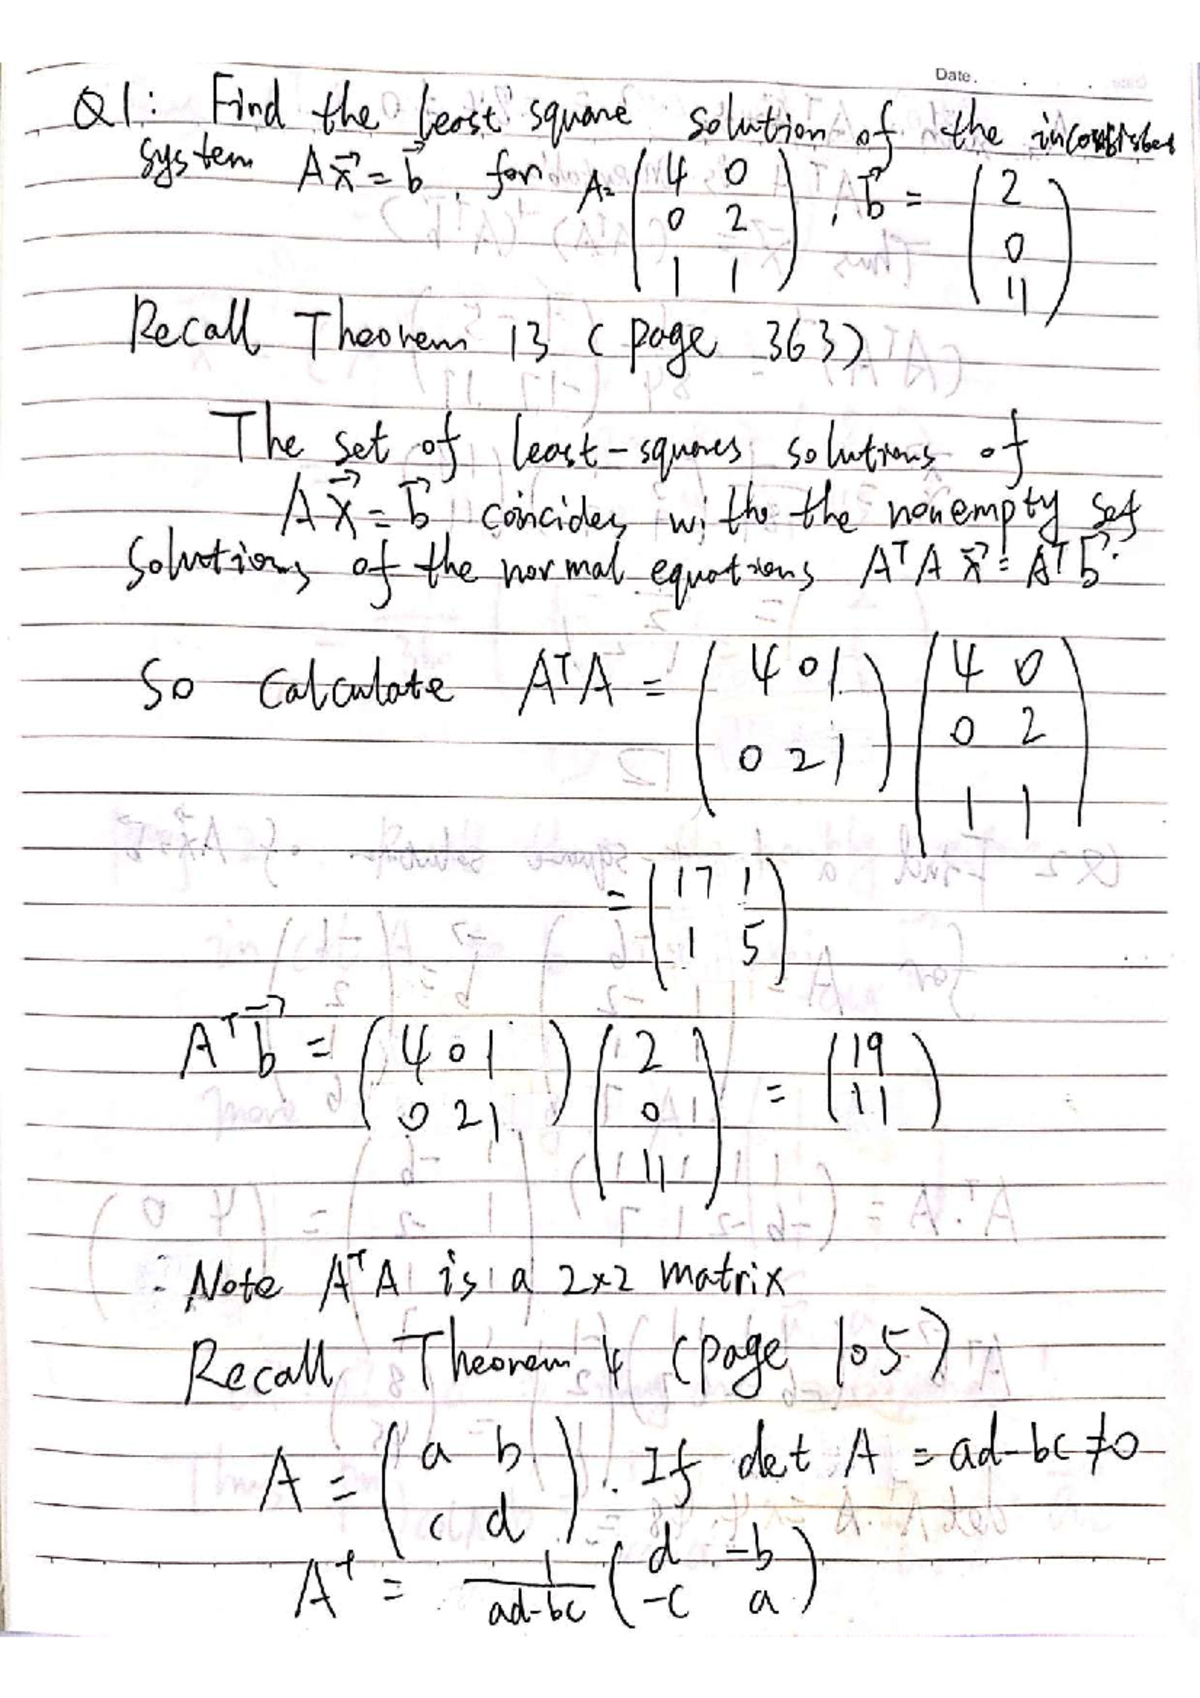 Date.
Q1: Find the least square solution of the inconsistent
system Ax⃗ = b⃗, for A= (4 0; 0 2; 1 1), b⃗ = (2; 0; 11)
Recall Theorem 13 (page 363)
The set of least-squares solutions of
Ax⃗ = b⃗ coincides with the nonempty set
solutions of the normal equations AᵀA x⃗ = Aᵀb⃗.
So Calculate AᵀA = (4 0 1; 0 2 1) (4 0; 0 2; 1 1)
= (17 1; 1 5)
Aᵀb⃗ = (4 0 1; 0 2 1) (2; 0; 11) = (19; 11)
Note AᵀA is a 2×2 matrix
Recall Theorem 4 (page 105)
A = (a b; c d). If det A = ad-bc ≠ 0
A⁻¹ = 1/(ad-bc) (d -b; -c a)